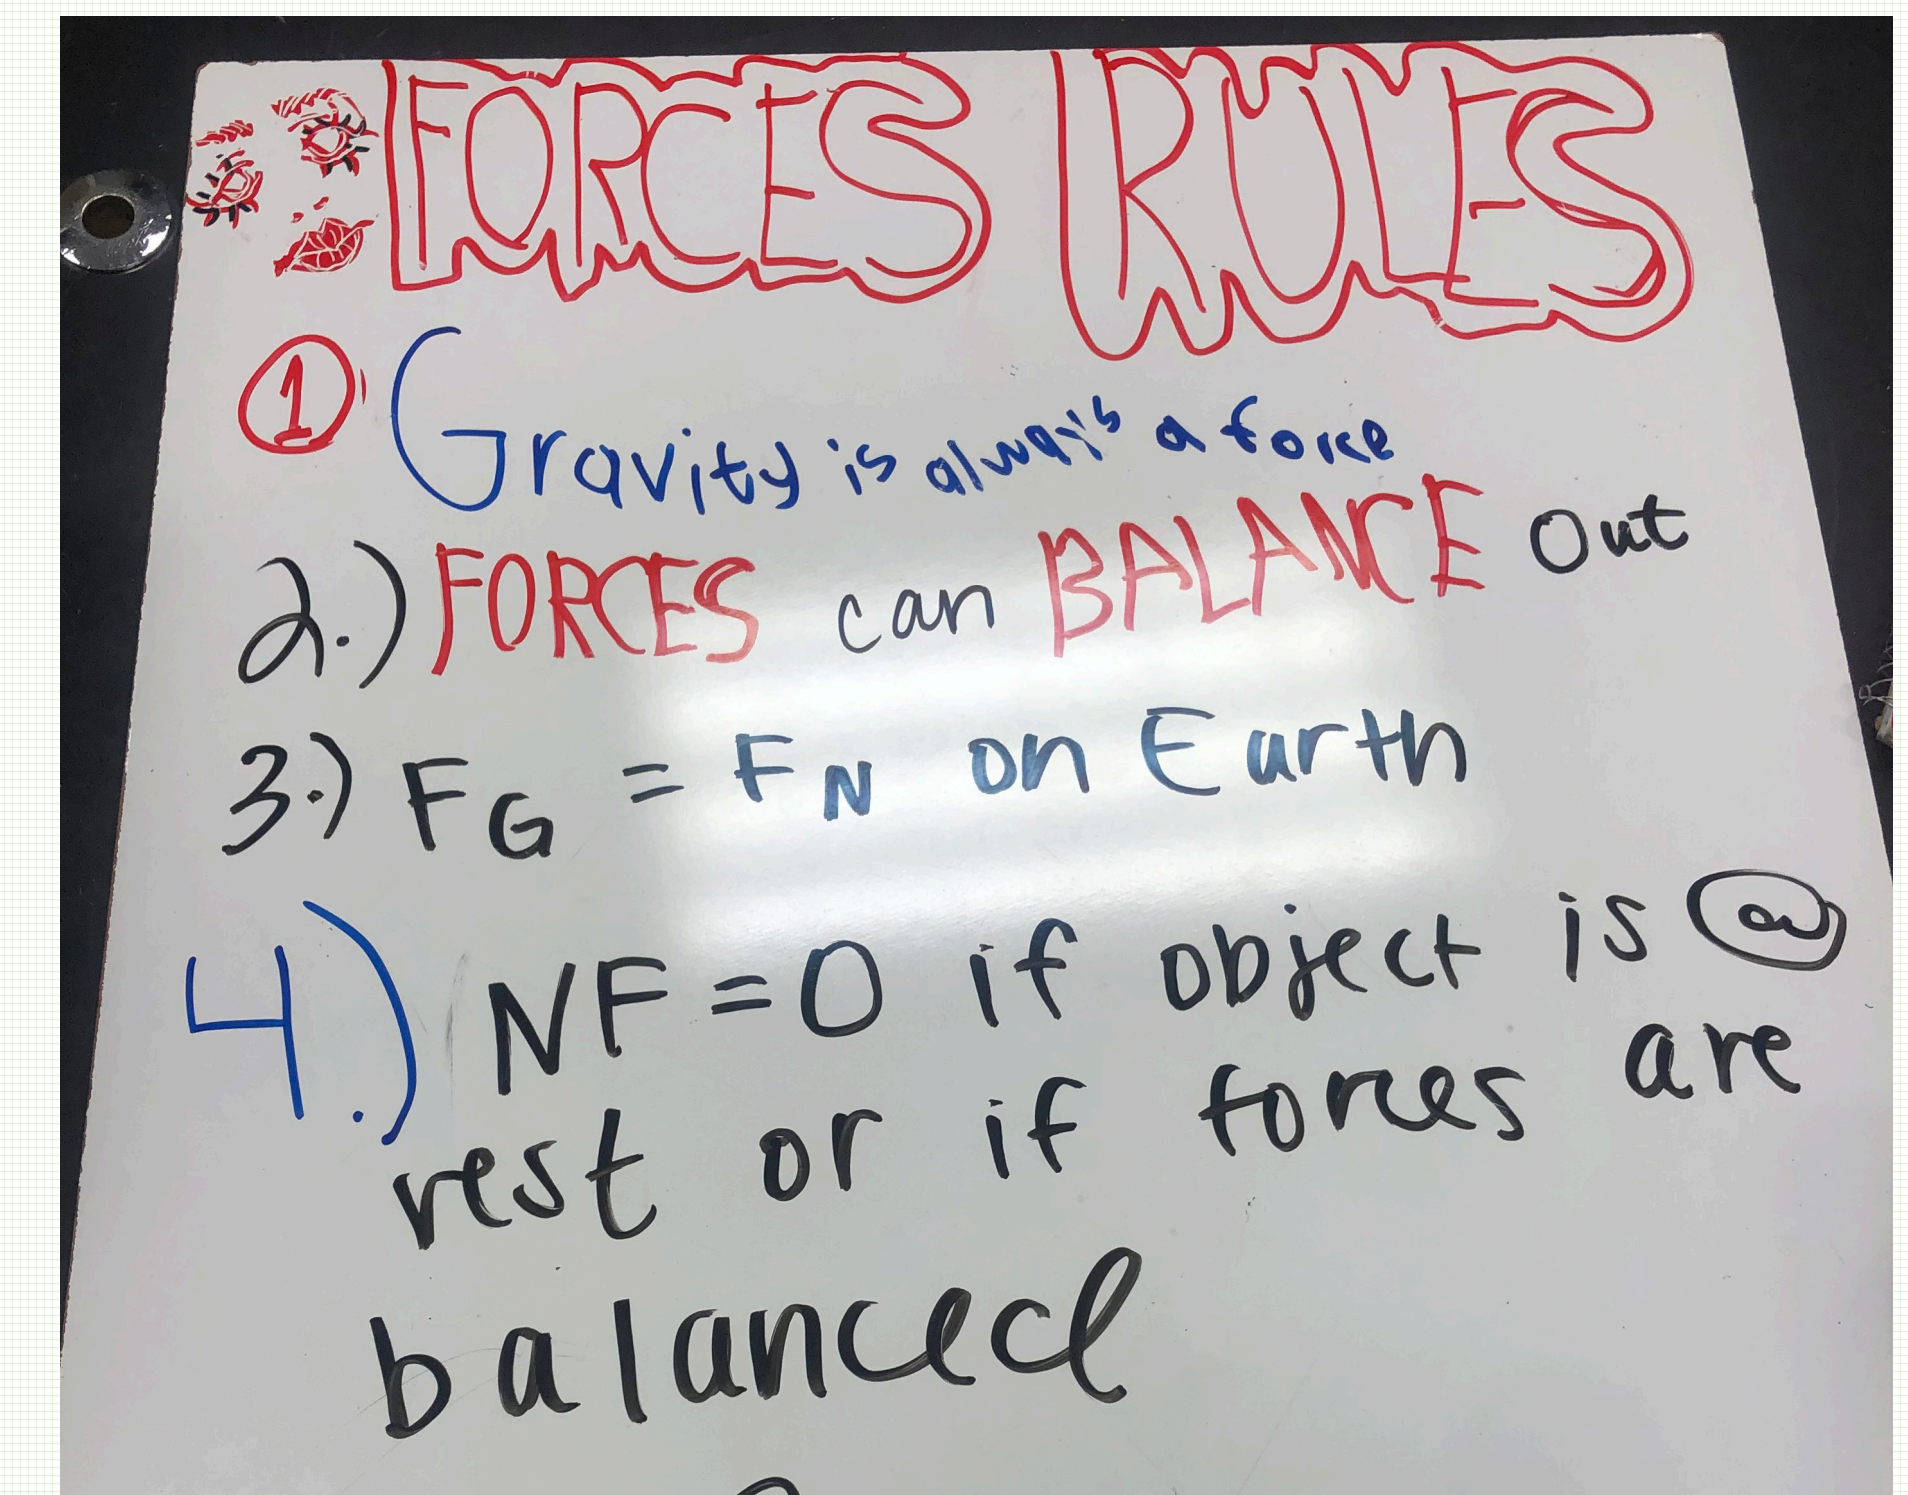 FORCES RULES
1 Gravity is always a force
2.) FORCES can BALANCE out
3.) FG = FN on Earth
4.) NF = 0 if object is @
rest or if forces are
balanced